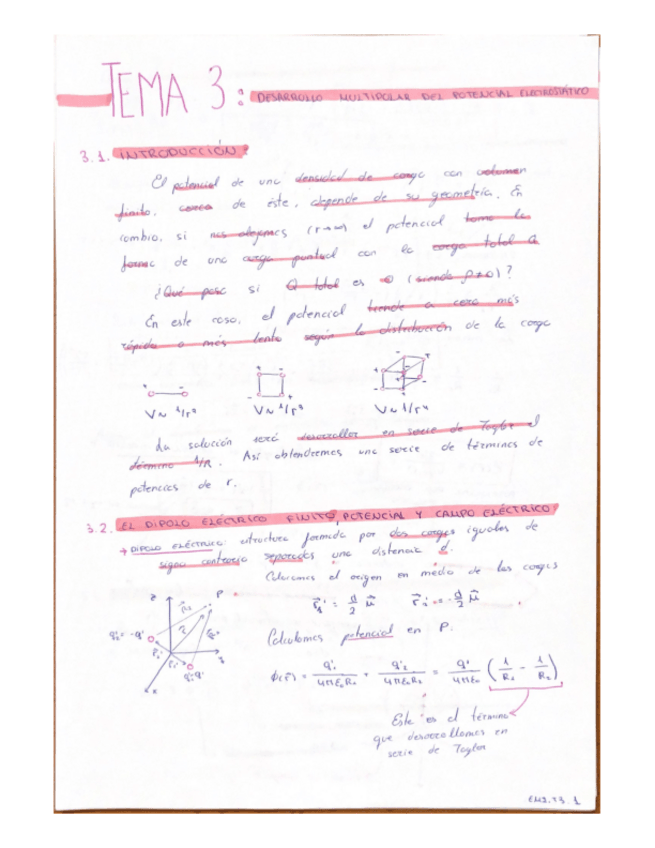 TEMA 3: DESARROLLO MULTIPOLAR DEL POTENCIAL ELECTROSTÁTICO
3.1. INTRODUCCIÓN:
El potencial de una densidad de carga con volumen
finito, cerca de éste, depende de su geometría. En
cambio, si nos alejamos (r→∞) el potencial toma la
forma de una carga puntual con la carga total Q
¿Qué pasa si Q total es 0 (siendo ρ≠0)?
En este caso, el potencial tiende a cero más
rápido o más lento según la distribución de la carga
V~1/r²
V~1/r³
V~1/r⁴
La solución será desarrollar en serie de Taylor el
término 1/R. Así obtendremos una serie de términos de
potencias de r.
3.2. EL DIPOLO ELÉCTRICO FINITO, POTENCIAL Y CAMPO ELÉCTRICO
→ DIPOLO ELÉCTRICO: estructura formada por dos cargas iguales de
signo contrario separadas una distancia d.
Colocamos el origen en medio de las cargas
r⃗₁' = d/2 μ⃗ r⃗₂' = -d/2 μ⃗
z P
q₂' = -q'
y
q₁' = q'
x
Calculamos potencial en P.
ϕ(r⃗) = q₁'/4πε₀R₁ + q₂'/4πε₀R₂ = q'/4πε₀ (1/R₁ - 1/R₂)
Este es el término
que desarrollamos en
serie de Taylor